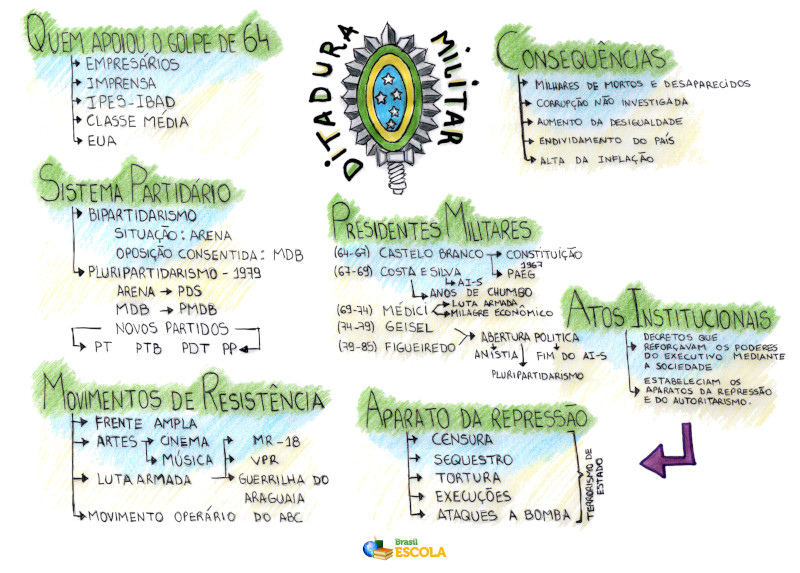 DITADURA MILITAR
QUEM APOIOU O GOLPE DE 64
EMPRESÁRIOS
IMPRENSA
IPES-IBAD
CLASSE MÉDIA
EUA
CONSEQUÊNCIAS
MILHARES DE MORTOS E DESAPARECIDOS
CORRUPÇÃO NÃO INVESTIGADA
AUMENTO DA DESIGUALDADE
ENDIVIDAMENTO DO PAÍS
ALTA DA INFLAÇÃO
SISTEMA PARTIDÁRIO
BIPARTIDARISMO
SITUAÇÃO: ARENA
OPOSIÇÃO CONSENTIDA: MDB
PLURIPARTIDARISMO - 1979
ARENA → PDS
MDB → PMDB
NOVOS PARTIDOS
PT PTB PDT PP
PRESIDENTES MILITARES
(64-67) CASTELO BRANCO → CONSTITUIÇÃO
1967
(67-69) COSTA E SILVA PAEG
AI-5
ANOS DE CHUMBO
(69-74) MÉDICI LUTA ARMADA
MILAGRE ECONÔMICO
(74-79) GEISEL
ABERTURA POLITICA
(79-85) FIGUEIREDO
ANISTIA FIM DO AI-5
PLURIPARTIDARISMO
ATOS INSTITUCIONAIS
DECRETOS QUE
REFORÇAVAM OS PODERES
DO EXECUTIVO MEDIANTE
A SOCIEDADE
ESTABELECIAM OS
APARATOS DA REPRESSÃO
E DO AUTORITARISMO.
MOVIMENTOS DE RESISTÊNCIA
FRENTE AMPLA
ARTES → CINEMA
MÚSICA
LUTA ARMADA
MR-18
VPR
GUERRILHA DO
ARAGUAIA
MOVIMENTO OPERÁRIO DO ABC
APARATO DA REPRESSÃO
CENSURA
SEQUESTRO
TORTURA
EXECUÇÕES
ATAQUES A BOMBA
TERRORISMO DE
ESTADO
Brasil
ESCOLA